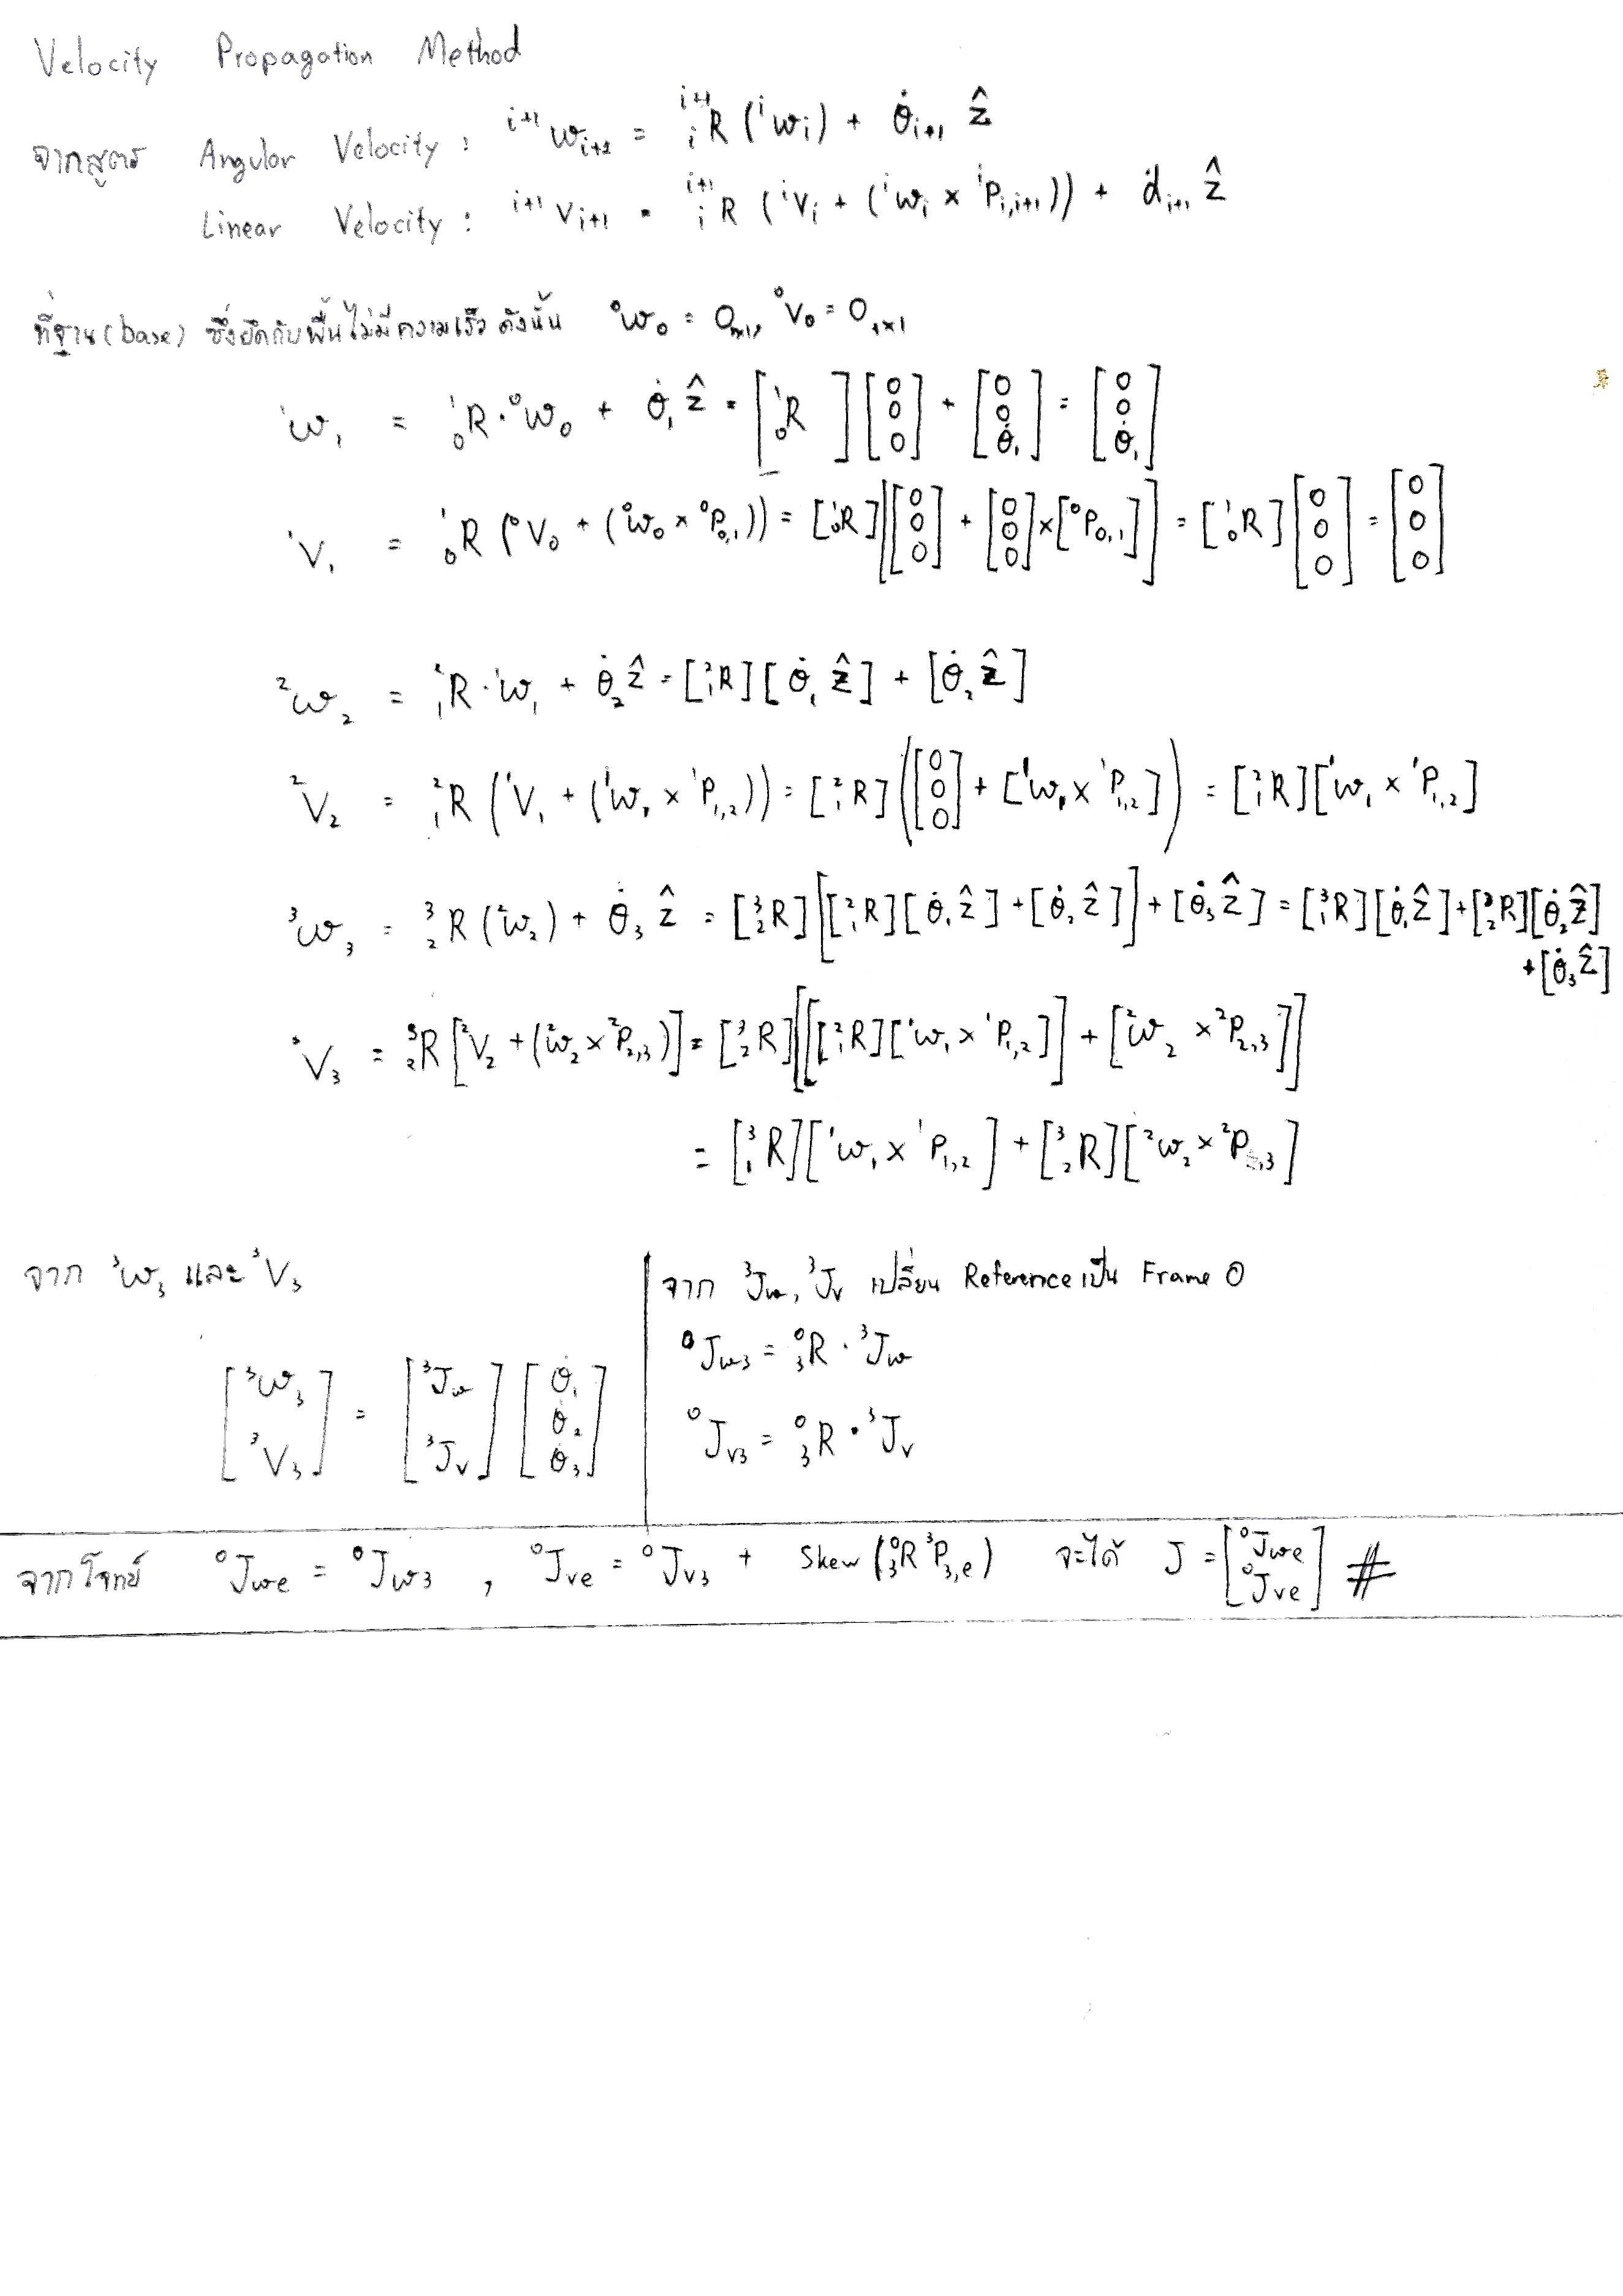 Velocity Propagation Method
จากสูตร Angular Velocity : ⁱ⁺¹ω_{i+1} = ⁱ⁺¹ᵢR (ⁱωᵢ) + θ̇_{i+1} ẑ
Linear Velocity : ⁱ⁺¹v_{i+1} = ⁱ⁺¹ᵢR (ⁱvᵢ + (ⁱωᵢ × ⁱP_{i,i+1})) + ḋ_{i+1} ẑ
ที่ฐาน (base) ซึ่งยึดกับพื้นไม่มีความเร็ว ดังนั้น ⁰ω₀ = 0, ⁰V₀ = 0
¹ω₁ = ¹₀R · ⁰ω₀ + θ̇₁ ẑ = [¹₀R] [0 0 0] + [0 0 θ̇₁] = [0 0 θ̇₁]
¹V₁ = ¹₀R (⁰V₀ + (⁰ω₀ × ⁰P₀,₁)) = [¹₀R] [[0 0 0] + [0 0 0] × [⁰P₀,₁]] = [¹₀R] [0 0 0] = [0 0 0]
²ω₂ = ²₁R · ¹ω₁ + θ̇₂ ẑ = [²₁R] [θ̇₁ ẑ] + [θ̇₂ ẑ]
²V₂ = ²₁R (¹V₁ + (¹ω₁ × ¹P₁,₂)) = [²₁R] ([0 0 0] + [¹ω₁ × ¹P₁,₂]) = [²₁R] [¹ω₁ × ¹P₁,₂]
³ω₃ = ³₂R (²ω₂) + θ̇₃ ẑ = [³₂R] [[²₁R] [θ̇₁ ẑ] + [θ̇₂ ẑ]] + [θ̇₃ ẑ] = [³₁R] [θ̇₁ ẑ] + [³₂R] [θ̇₂ ẑ]
+ [θ̇₃ ẑ]
³V₃ = ³₂R [²V₂ + (²ω₂ × ²P₂,₃)] = [³₂R] [[[²₁R] [¹ω₁ × ¹P₁,₂]] + [²ω₂ × ²P₂,₃]]
= [³₁R] [¹ω₁ × ¹P₁,₂] + [³₂R] [²ω₂ × ²P₂,₃]
จาก ³ω₃ และ ³V₃
[³ω₃ ³V₃] = [³Jω ³Jv] [θ̇₁ θ̇₂ θ̇₃]
จาก ³Jω, ³Jv เปลี่ยน Reference เป็น Frame 0
⁰Jω₃ = ⁰₃R · ³Jω
⁰Jv₃ = ⁰₃R · ³Jv
จากโจทย์ ⁰Jωe = ⁰Jω₃ , ⁰Jve = ⁰Jv₃ + Skew (⁰₃R ³P₃,e) จะได้ J = [⁰Jωe ⁰Jve] #